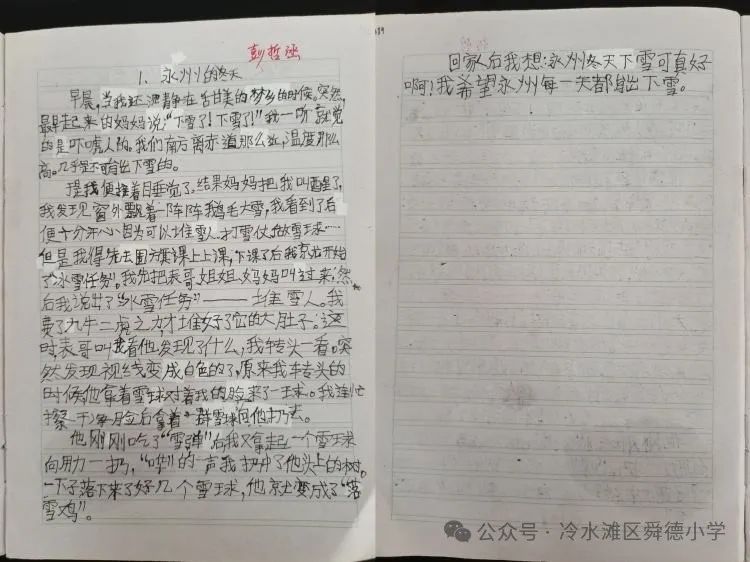 彭哲
1、永州的冬天
早晨,当我还沉静在香甜美的梦乡的时候。突然,
最早起来的妈妈说:“下雪了!下雪了!”我一听就觉
的是吓唬人的。我们南方离赤道那么近,温度那么
高。几乎是不可能下雪的。
于是我便接着睡觉了。结果妈妈把我叫醒了,
我发现窗外飘着一阵阵鹅毛大雪,我看到了后
便十分开心因为可以堆雪人、打雪仗、做雪球……
但是我得先去围棋课上上课,下课了后我就开始
了“冰雪任务”。我先把表哥、姐姐、妈妈叫过来,然
后我说出了“冰雪任务”——堆雪人。我
费了九牛二虎之力才堆好了它的大肚子。这
时,表哥叫我看他发现了什么,我转头一看。突
然发现视线变成白色的了,原来我转头的
时候他拿着雪球对着我的脸来了一球。我连忙
擦干净脸后拿着一群雪球向他扔去。
他刚刚吃了“雪弹”后我又拿起一个雪球
向用力一扔,“哄!”的一声我扔中了他头上的树。
一下子落下来了好几个雪球,他就变成了“落
雪鸡”。
回家后我想:永州冬天下雪可真好
啊!我希望永州每一天都能下雪。
公众号·冷水滩区舜德小学